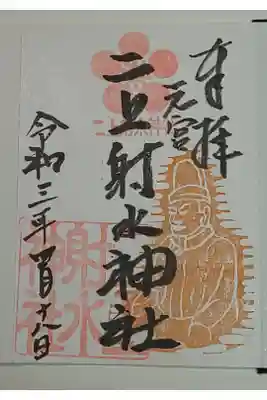 奉拝
元宮
二上射水神社
令和三年四月十八日
射水
神社